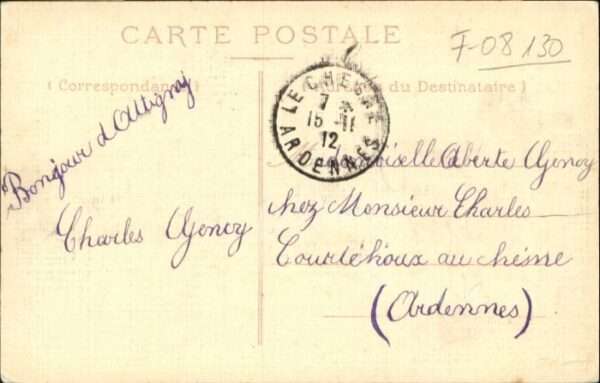 CARTE POSTALE
F-08 130
( Correspondance )
du Destinataire )
LE CHESNE
7 *
15 - 11
12
ARDENNES
Bonjour d'Attigny
Charles Ogenoy
Mademoiselle Aberte Ogenoy
chez Monsieur Charles
Courtéhoux au chesne
(Ardennes)